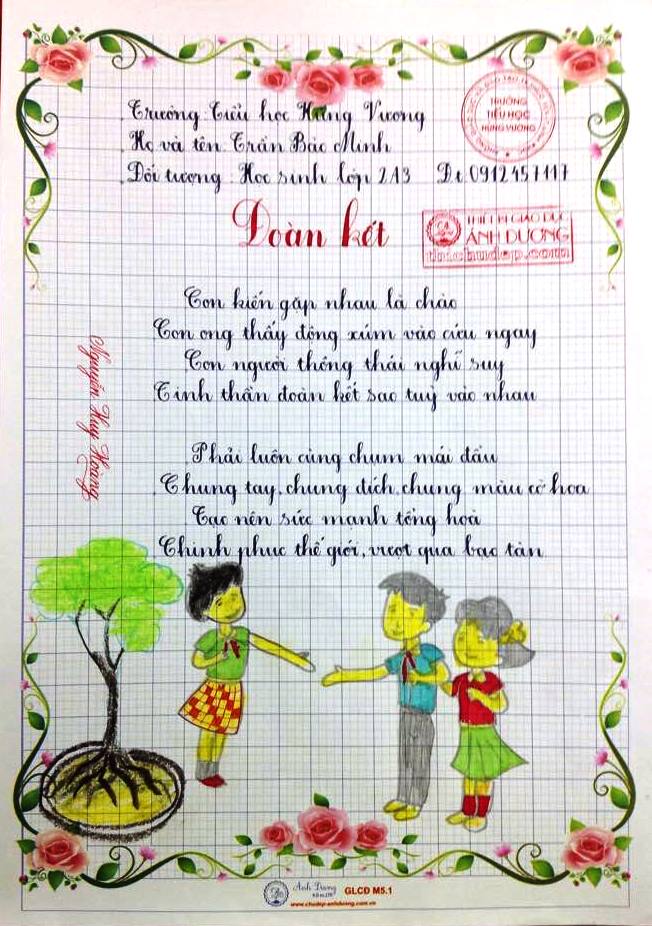 Trường Tiểu học Hùng Vương
Họ và tên Trần Bảo Minh
Đối tượng: Học sinh lớp 2A3 Đt 0912457117
TRƯỜNG
TIỂU HỌC
HÙNG VƯƠNG
Đoàn kết
THIẾT BỊ GIÁO DỤC
ÁNH DƯƠNG
Con kiến gặp nhau là chào
Con ong thấy động xúm vào cứu ngay
Con người thông thái nghĩ suy
Tinh thần đoàn kết sao tuỳ vào nhau
Phải luôn cùng chụm mái đầu
Chung tay, chung đích, chung màu cờ hoa
Tạo nên sức mạnh tổng hoà
Chinh phục thế giới, vượt qua bạo tàn
Nguyễn Huy Hoàng
Ánh Dương
GLCD M5.1
www.chudep-anhduong.com.vn